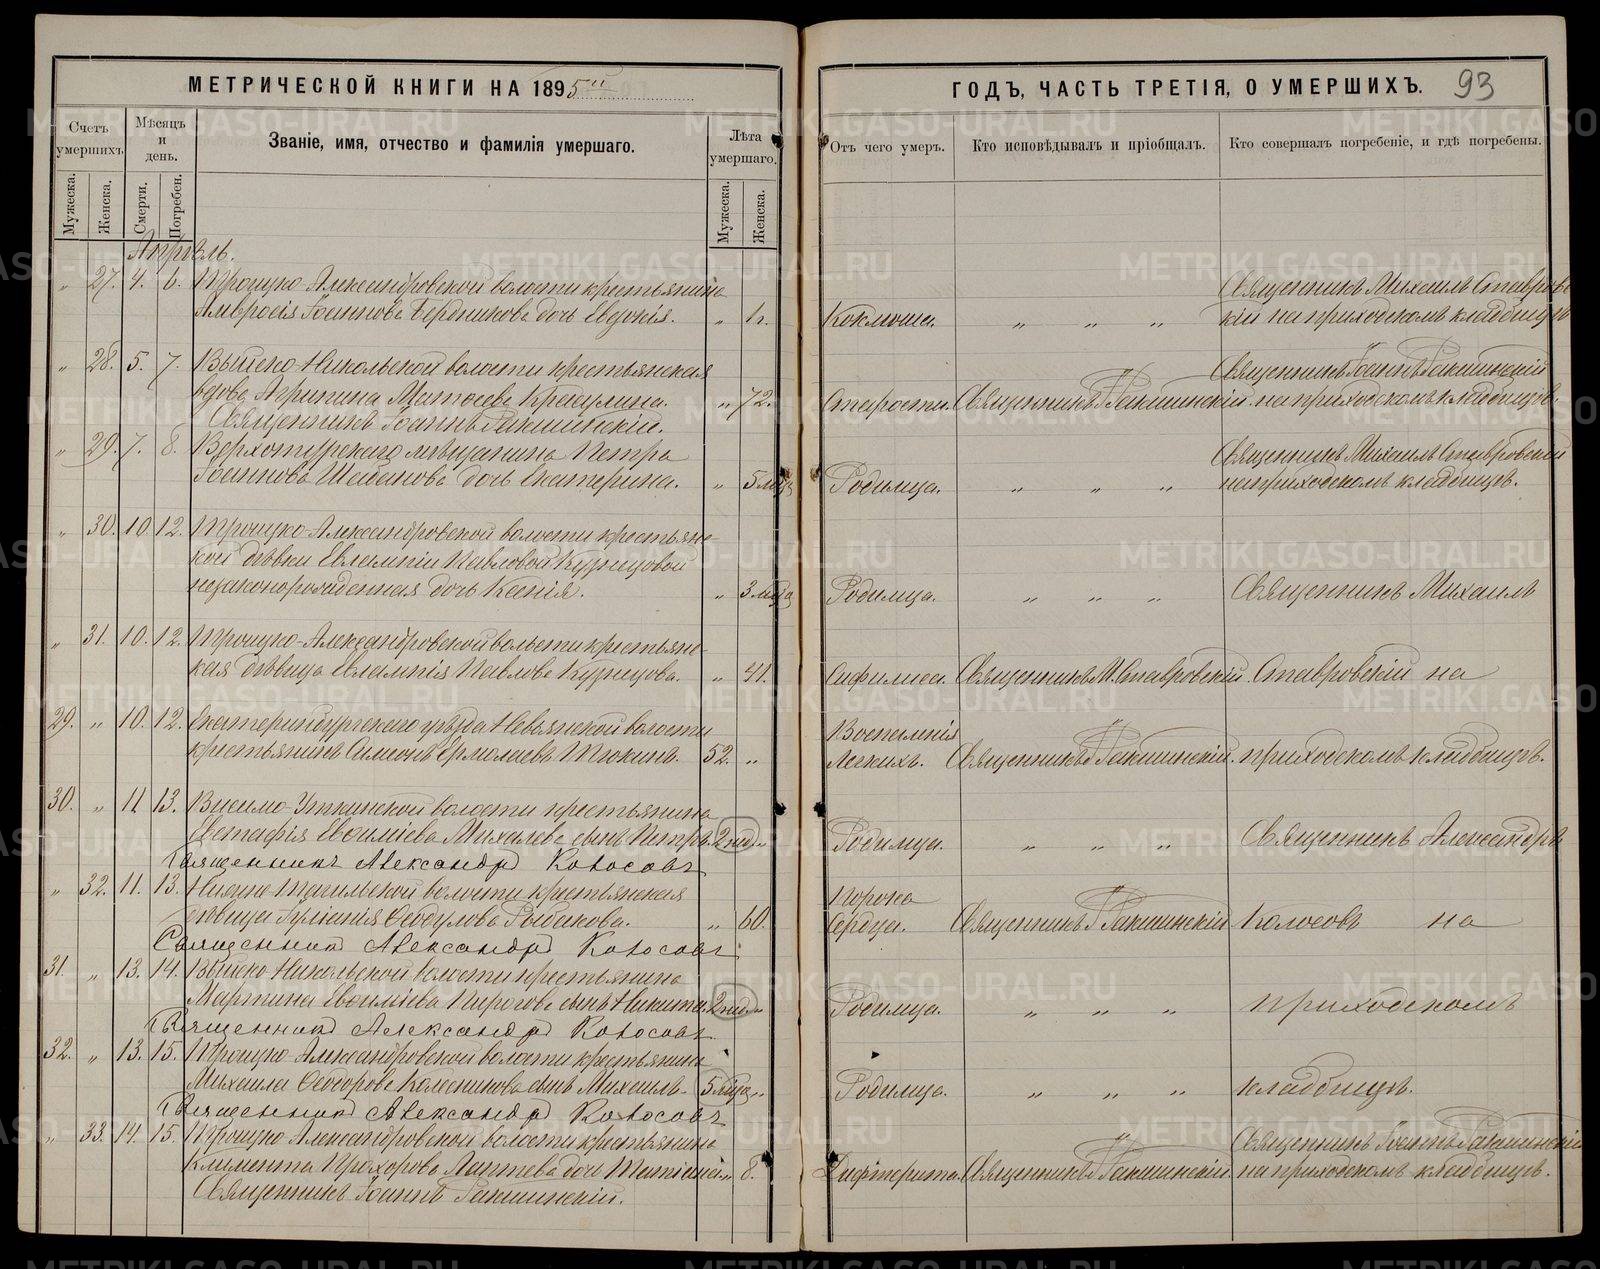 МЕТРИЧЕСКОЙ КНИГИ НА 1895
ГОДЪ, ЧАСТЬ ТРЕТІЯ, О УМЕРШИХЪ. 93
Счетъ умершихъ.
Мѣсяцъ и день.
Званіе, имя, отчество и фамилія умершаго.
Лѣта умершаго.
Отъ чего умеръ.
Кто исповѣдывалъ и пріобщалъ.
Кто совершалъ погребеніе, и гдѣ погребены.
Мужеска. Женска. Смерти. Погребен. Мужеска. Женска.
Апрѣль.
„ 27. 4. 6. Троицко-Александровской волости крестьянина Священникъ Михаилъ Ставровс
Амвросія Іоаннова Бердникова дочь Евдокія. „ 1 г. Коклюша. „ „ „ кій на приходскомъ кладбищѣ
„ 28. 5. 7. Выйско-Никольской волости крестьянская Священникъ Іоаннъ
вдова Агрипина Матѳеева „ 72. Старости. Священникъ І. на приходскомъ кладбищѣ.
Священникъ Іоаннъ
„ 29. 7. 8. Верхотурскаго мѣщанина Петра Священникъ Михаилъ Ставровскій
Іоаннова дочь Екатерина. „ 5 мѣс Родимца. „ „ „ на приходскомъ кладбищѣ.
„ 30. 10. 12. Троицко-Александровской волости крестьянс-
кой дѣвки Евлампіи Павловой Кузнецовой
незаконорожденная дочь Ксенія. „ 3 мѣс Родимца. „ „ „ Священникъ Михаилъ
„ 31. 10. 12. Троицко-Александровской волости крестьянс-
кая дѣвица Евлампія Павлова Кузнецова. „ 41. Сифилиса. Священникъ М. Ставровскій. Ставровскій на
29. „ 10. 12. Екатеринбургскаго уѣзда Невьянской волости Воспаленія
крестьянинъ Симеонъ Ермолаевъ Тюкинъ. 52. „ Легкихъ. Священникъ І. приходскомъ кладбищѣ.
30. „ 11. 13. Висимо-Уткинской волости крестьянина
Евстафія Евѳиміева Михалева сынъ Петръ. 2 нед. „ Родимца. „ „ „ Священникъ Александръ
Священникъ Александръ Колосовъ
„ 32. 11. 13. Нижне-Тагильской волости крестьянская Порока
дѣвица Іуліанія Ѳеодулова Рыбакова. „ 60. Сердца. Священникъ І. Колосовъ на
Священникъ Александръ Колосовъ
31. „ 13. 14. Выйско-Никольской волости крестьянина
Мартина Евѳиміева Пирогова сынъ Никита. 2 нед. „ Родимца. „ „ „ приходскомъ
Священникъ Александръ Колосовъ
32. „ 13. 15. Троицко-Александровской волости крестьянина
Михаила Ѳеодорова Колесникова сынъ Михаилъ. 5 мѣс „ Родимца. „ „ „ кладбищѣ.
Священникъ Александръ Колосовъ
„ 33. 14. 15. Троицко-Александровской волости крестьянина Священникъ Іоаннъ
Климента Прохорова Лаптева дочь „ 8. Дифтерита. Священникъ І. на приходскомъ кладбищѣ.
Священникъ Іоаннъ
METRIKI.GASO-URAL.RU